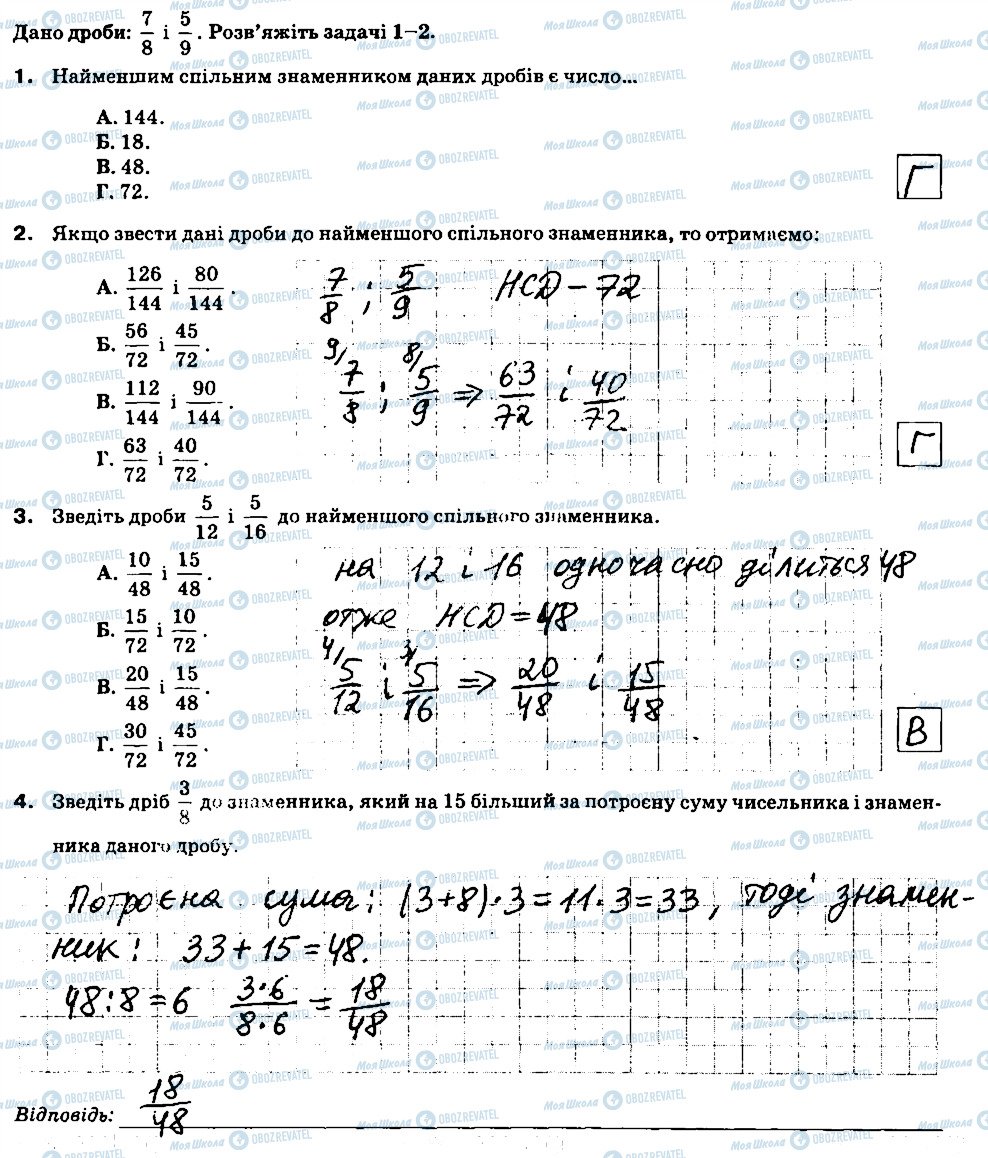 Дано дроби: 7/8 і 5/9. Розв'яжіть задачі 1–2.
1. Найменшим спільним знаменником даних дробів є число...
А. 144.
Б. 18.
В. 48.
Г. 72.
Г
2. Якщо звести дані дроби до найменшого спільного знаменника, то отримаємо:
А. 126/144 і 80/144.
Б. 56/72 і 45/72.
В. 112/144 і 90/144.
Г. 63/72 і 40/72.
7/8 ; 5/9 НСД – 72
9/ 7/8 ; 8/ 5/9 => 63/72 і 40/72
Г
3. Зведіть дроби 5/12 і 5/16 до найменшого спільного знаменника.
А. 10/48 і 15/48.
Б. 15/72 і 10/72.
В. 20/48 і 15/48.
Г. 30/72 і 45/72.
на 12 і 16 одночасно ділиться 48
отже НСД = 48
4/ 5/12 і 3/ 5/16 => 20/48 і 15/48
В
4. Зведіть дріб 3/8 до знаменника, який на 15 більший за потроєну суму чисельника і знамен-
ника даного дробу.
Потроєна сума: (3+8)·3=11·3=33, тоді знамен-
ник: 33+15=48.
48:8=6 3·6/8·6 = 18/48
Відповідь: 18/48
МояШкола OBOZREVATEL